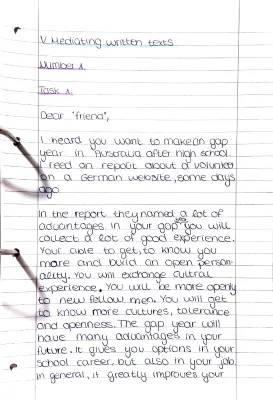 V Mediating written texts
Number 1.
Task 1.
Dear "friend",
I heard you want to make (in gap
year in Australia after high school.
I read on report about a volunteer
on a German website, some days
ago.
In the report they named a lot of
advantages in your gap you will
collect a lot of good experience.
Your able to get to know you
more and build an open person-
ality. You will exchange cultral
experience. You will be more openly
to new fellow men. You will get
to know more cultures, tolerance
and openness. The gap year will
have many advantages in your
future. It gives you options in your
school career, but also in your job
in general, it greatly improves your